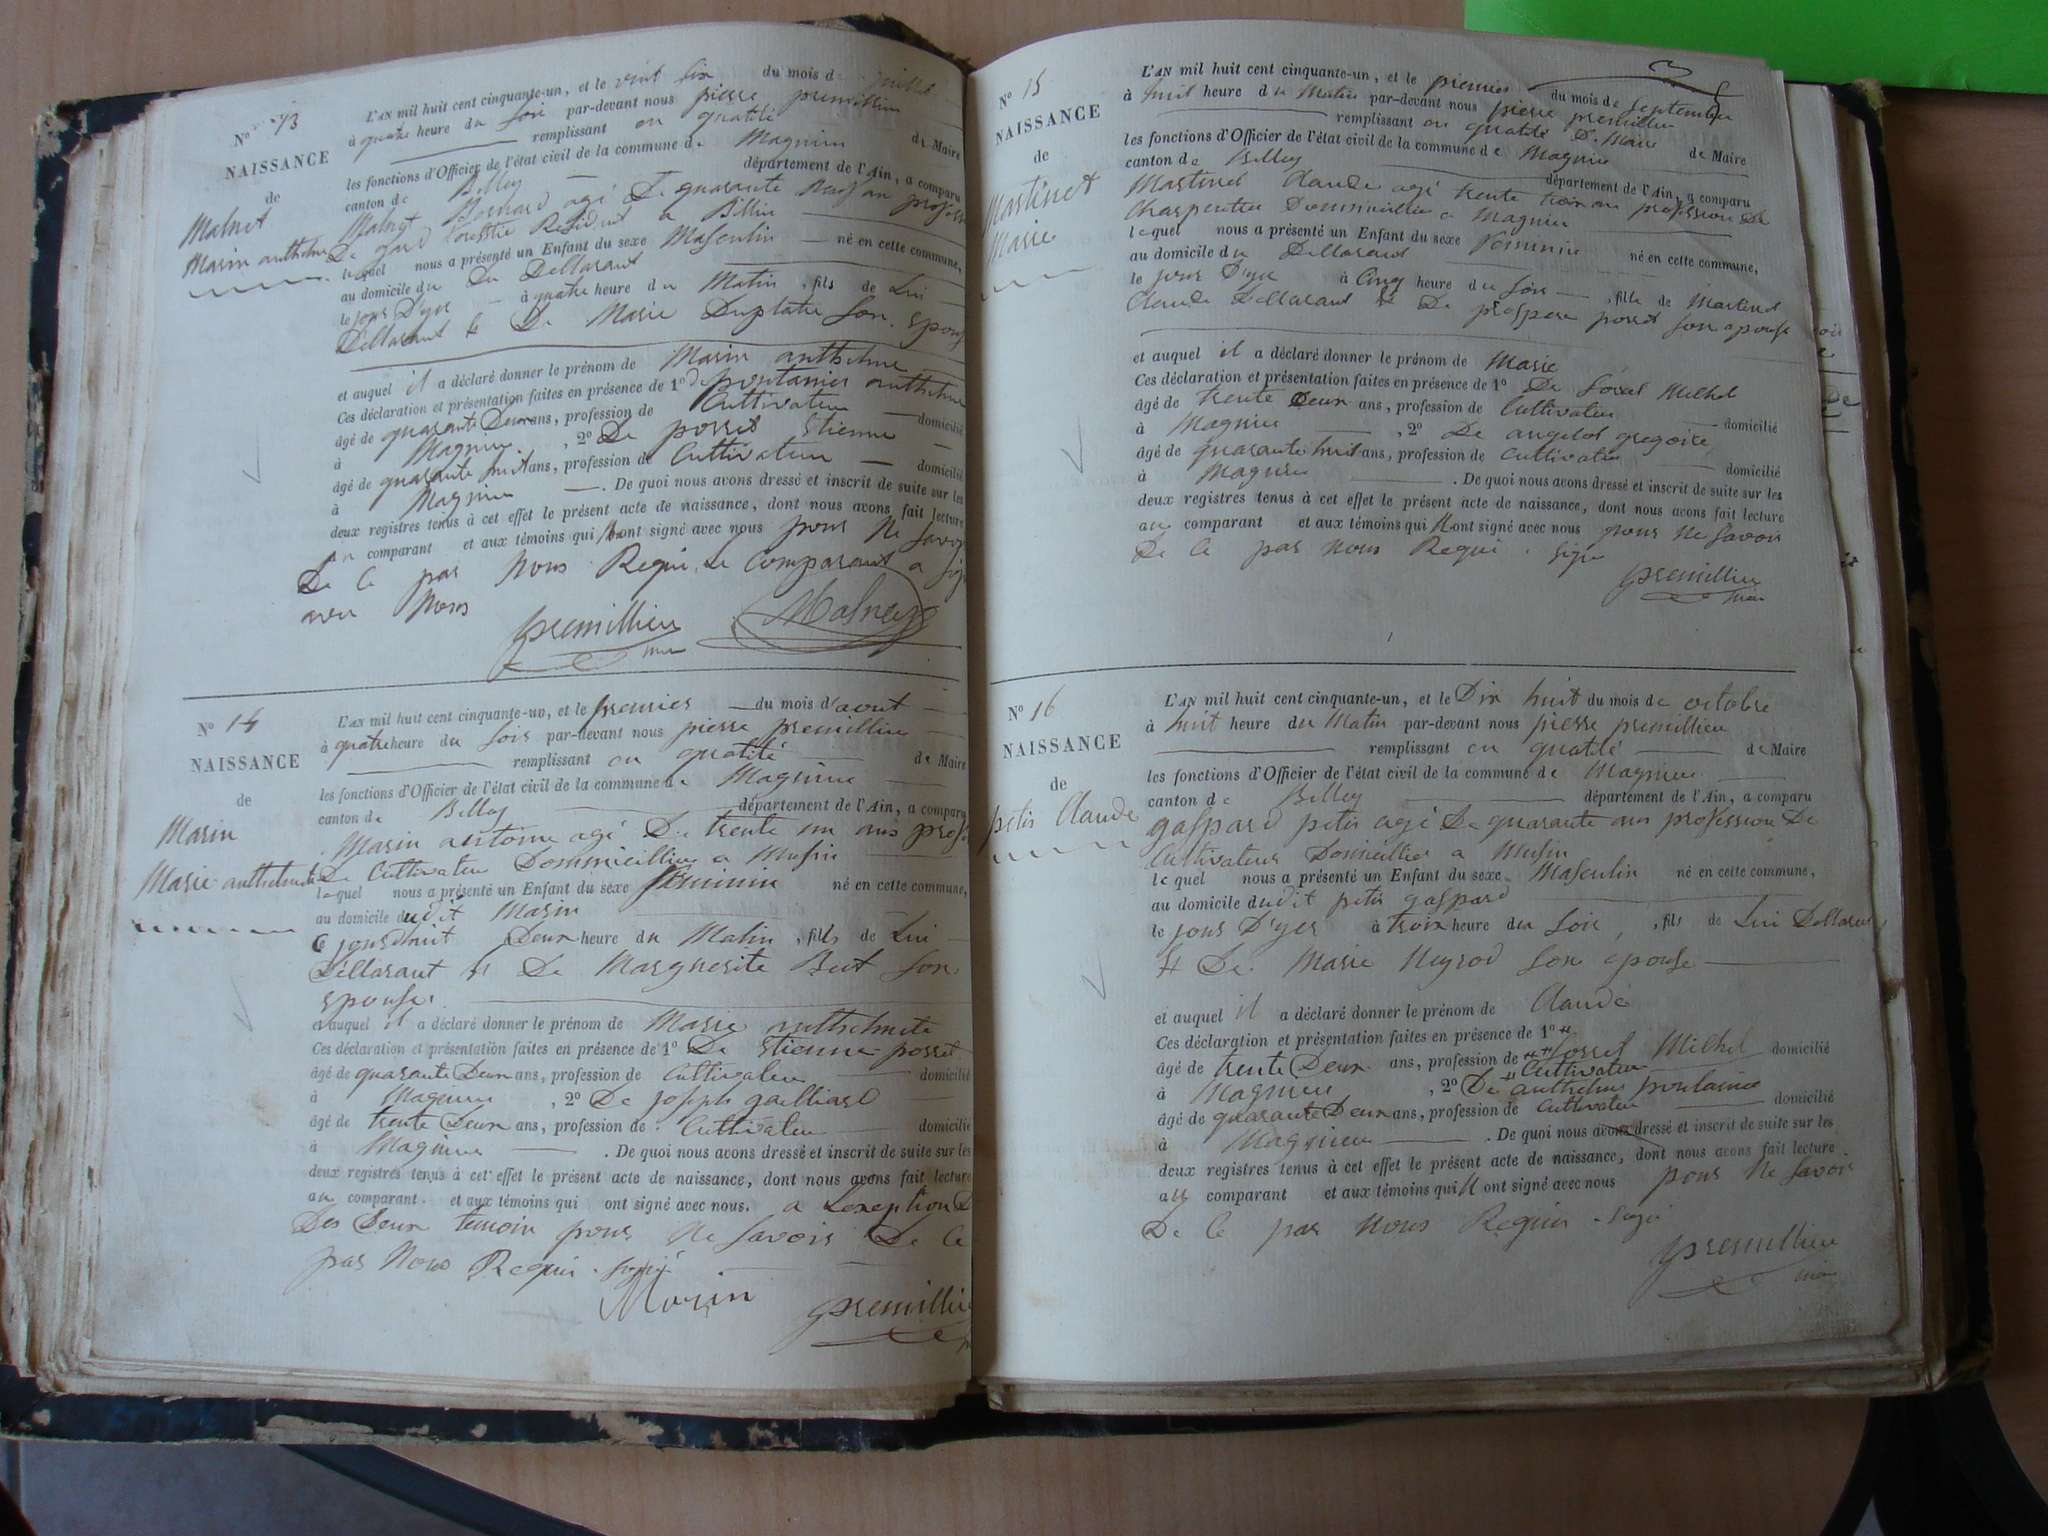 N° 13
NAISSANCE
de
Malnet
Marin anthelme
L'AN mil huit cent cinquante-un, et le vint six du mois de juillet
à quatre heure du soir par-devant nous pierre premillieu
remplissant en qualité de Maire
les fonctions d'Officier de l'état civil de la commune de Magnieu
canton de Belley département de l'Ain, a comparu
Malnet Bernard agé De quarante neuf an profess
De gard forestie Résident a Billieu
lequel nous a présenté un Enfant du sexe Masculin né en cette commune,
au domicile du Du Dellarant
le jour D'yer à quatre heure du Matin, fils de Lui
Dellarant & De Marie Duplatre Son Epouse
et auquel il a déclaré donner le prénom de Marin anthelme
Ces déclaration et présentation faites en présence de 1° de pontanier anthelme
âgé de quarante Deux ans, profession de Cultivateur domicilié
à Magnieu, 2° De porret Etienne
âgé de quarante huit ans, profession de Cultivateur domicilié
à Magnieu. De quoi nous avons dressé et inscrit de suite sur les
deux registres tenus à cet effet le présent acte de naissance, dont nous avons fait lecture
au comparant et aux témoins qui n'ont signé avec nous pour ne savoir
De Ce par Nous Requi. Le comparant a sign
avec Nous
premillieu Malnet
maire
N° 14
NAISSANCE
de
Marin
Marie anthelmete
L'AN mil huit cent cinquante-un, et le premier du mois d'aout
à quatre heure du soir par-devant nous pierre premillieu
remplissant en qualité de Maire
les fonctions d'Officier de l'état civil de la commune de Magnieu
canton de Belley département de l'Ain, a comparu
Marin antoine agé De trente un ans profe
De Cultivateur Dommicillier a Musin
lequel nous a présenté un Enfant du sexe féminin né en cette commune,
au domicile dudit Marin
Ce jourdhuit Deux heure du Matin, fils de Lui
Dellarant & De Marguerite Bert Son
Epouse.
et auquel il a déclaré donner le prénom de Marie anthelmete
Ces déclaration et présentation faites en présence de 1° De Etienne porret
âgé de quarante Deux ans, profession de Cultivateur domicilié
à Magnieu, 2° De joseph gailliard
âgé de trente Deux ans, profession de Cultivateur domicilié
à Magnieu. De quoi nous avons dressé et inscrit de suite sur les
deux registres tenus à cet effet le présent acte de naissance, dont nous avons fait lecture
au comparant. et aux témoins qui ont signé avec nous. a L'exeption D
Des Deux temoin pour Ne Savoir De Ce
par Nous Requi. Signé
Marin premillieu
N° 15
NAISSANCE
de
Martinet
Marie
L'AN mil huit cent cinquante-un, et le premier du mois de septembre
à huit heure du Matin par-devant nous pierre premillieu
remplissant en qualité D. Maire de Maire
les fonctions d'Officier de l'état civil de la commune de Magnieu
canton de Belley département de l'Ain, a comparu
Martinet Claude agé trente trois an profession De
Charpentier Dommicillier a Magnieu
lequel nous a présenté un Enfant du sexe Feminin né en cette commune,
au domicile du Dellarant
le jour D'yer à Cinq heure du Soir, fille de Martinet
Claude Dellarant & De prospere porret Son epouse
et auquel il a déclaré donner le prénom de Marie
Ces déclaration et présentation faites en présence de 1° De Michel
âgé de trente Deux ans, profession de Cultivateur domicilié
à Magnieu, 2° De angelot gregoire,
âgé de quarante huit ans, profession de Cultivateur domicilié
à Magnieu. De quoi nous avons dressé et inscrit de suite sur les
deux registres tenus à cet effet le présent acte de naissance, dont nous avons fait lecture
au comparant et aux témoins qui N'ont signé avec nous pour Ne Savoir
De Ce par Nous Requi. Signé
premillieu
maire
N° 16
NAISSANCE
de
petit Claude
L'AN mil huit cent cinquante-un, et le Dix huit du mois de octobre
à huit heure du Matin par-devant nous pierre premillieu
remplissant en qualité de Maire
les fonctions d'Officier de l'état civil de la commune de Magnieu
canton de Belley département de l'Ain, a comparu
gaspard petit agé De quarante ans profession De
Cultivateur Domicillier a Musin
lequel nous a présenté un Enfant du sexe Masculin né en cette commune,
au domicile dudit petit gaspard
le jour D'yer à troix heure du Soir, fils de Lui Dellarant
& De. Marie Neyrod Son epouse
et auquel il a déclaré donner le prénom de Claude
Ces déclaration et présentation faites en présence de 1°
âgé de trente Deux ans, profession de Michel domicilié
Cultivateur
à Magnieu, 2° De anthelme pontanier
âgé de quarante Deux ans, profession de Cultivateur domicilié
à Magnieu. De quoi nous avons dressé et inscrit de suite sur les
deux registres tenus à cet effet le présent acte de naissance, dont nous avons fait lecture
aux comparant et aux témoins qui N'ont signé avec nous pour Ne Savoir
De Ce par Nous Requi. Signé
premillieu
maire